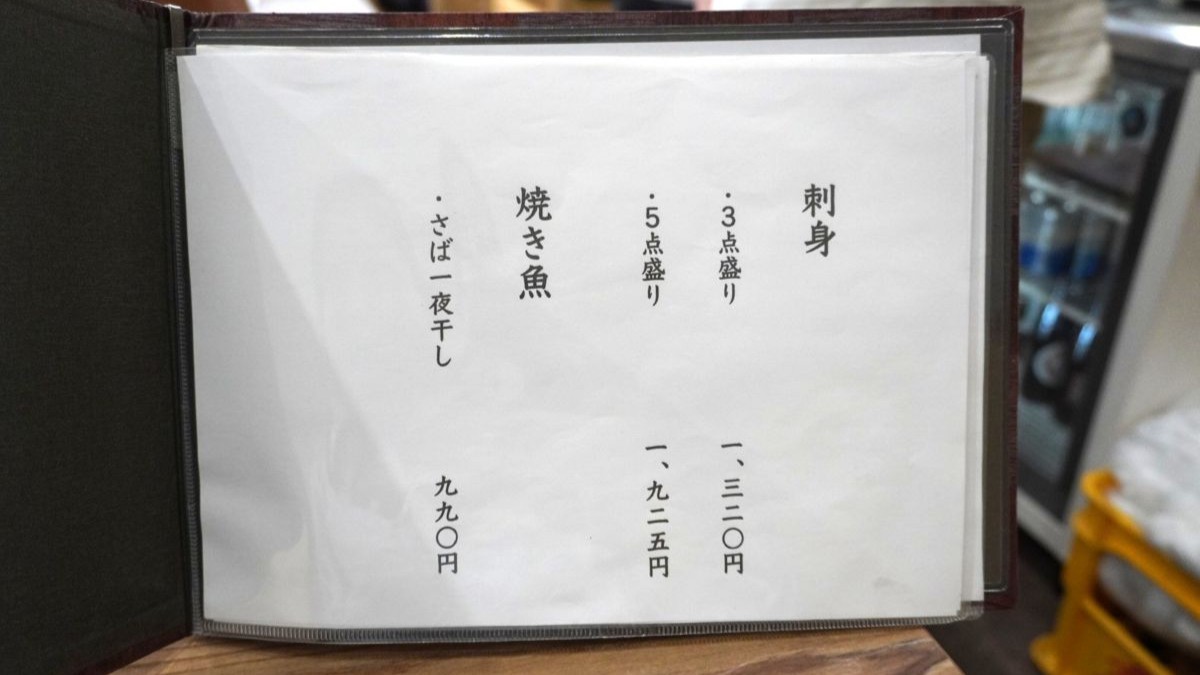 刺身
・3点盛り 一、三二〇円
・5点盛り 一、九二五円
焼き魚
・さば一夜干し 九九〇円